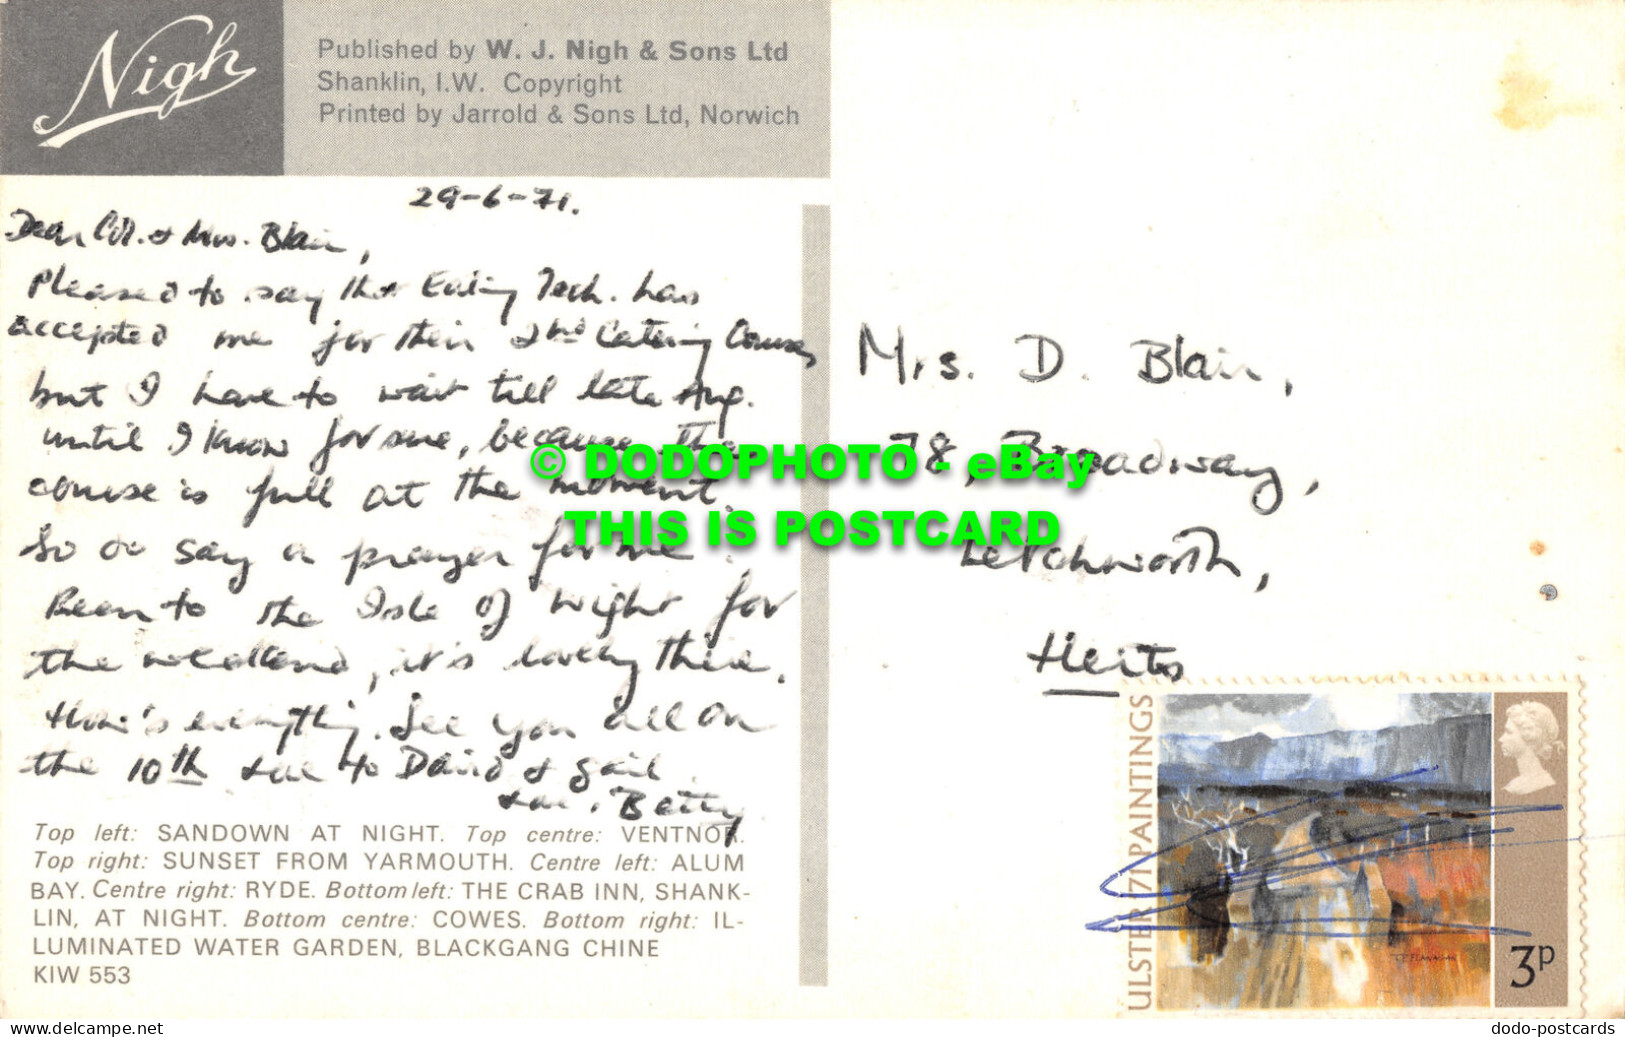 Nigh
Published by W. J. Nigh & Sons Ltd
Shanklin, I.W. Copyright
Printed by Jarrold & Sons Ltd, Norwich
29-6-71.
Dear Col. & Mrs. Blair,
Pleased to say that Ealing Tech. has
accepted me for their 2nd Catering Course,
but I have to wait till late Aug.
until I know for sure, because the
course is full at the moment.
So do say a prayer for me.
Been to the Isle of Wight for
the weekend, it's lovely there.
How's everything. See you all on
the 10th to David & Gail.
Betty
Mrs. D. Blair,
78, Broadway,
Letchworth,
Herts
© DODOPHOTO - eBay
THIS IS POSTCARD
Top left: SANDOWN AT NIGHT. Top centre: VENTNOR.
Top right: SUNSET FROM YARMOUTH. Centre left: ALUM
BAY. Centre right: RYDE. Bottom left: THE CRAB INN, SHANK-
LIN, AT NIGHT. Bottom centre: COWES. Bottom right: IL-
LUMINATED WATER GARDEN, BLACKGANG CHINE
KIW 553
ULSTER '71 PAINTINGS
T.P. FLANAGAN
3p
www.delcampe.net
dodo-postcards